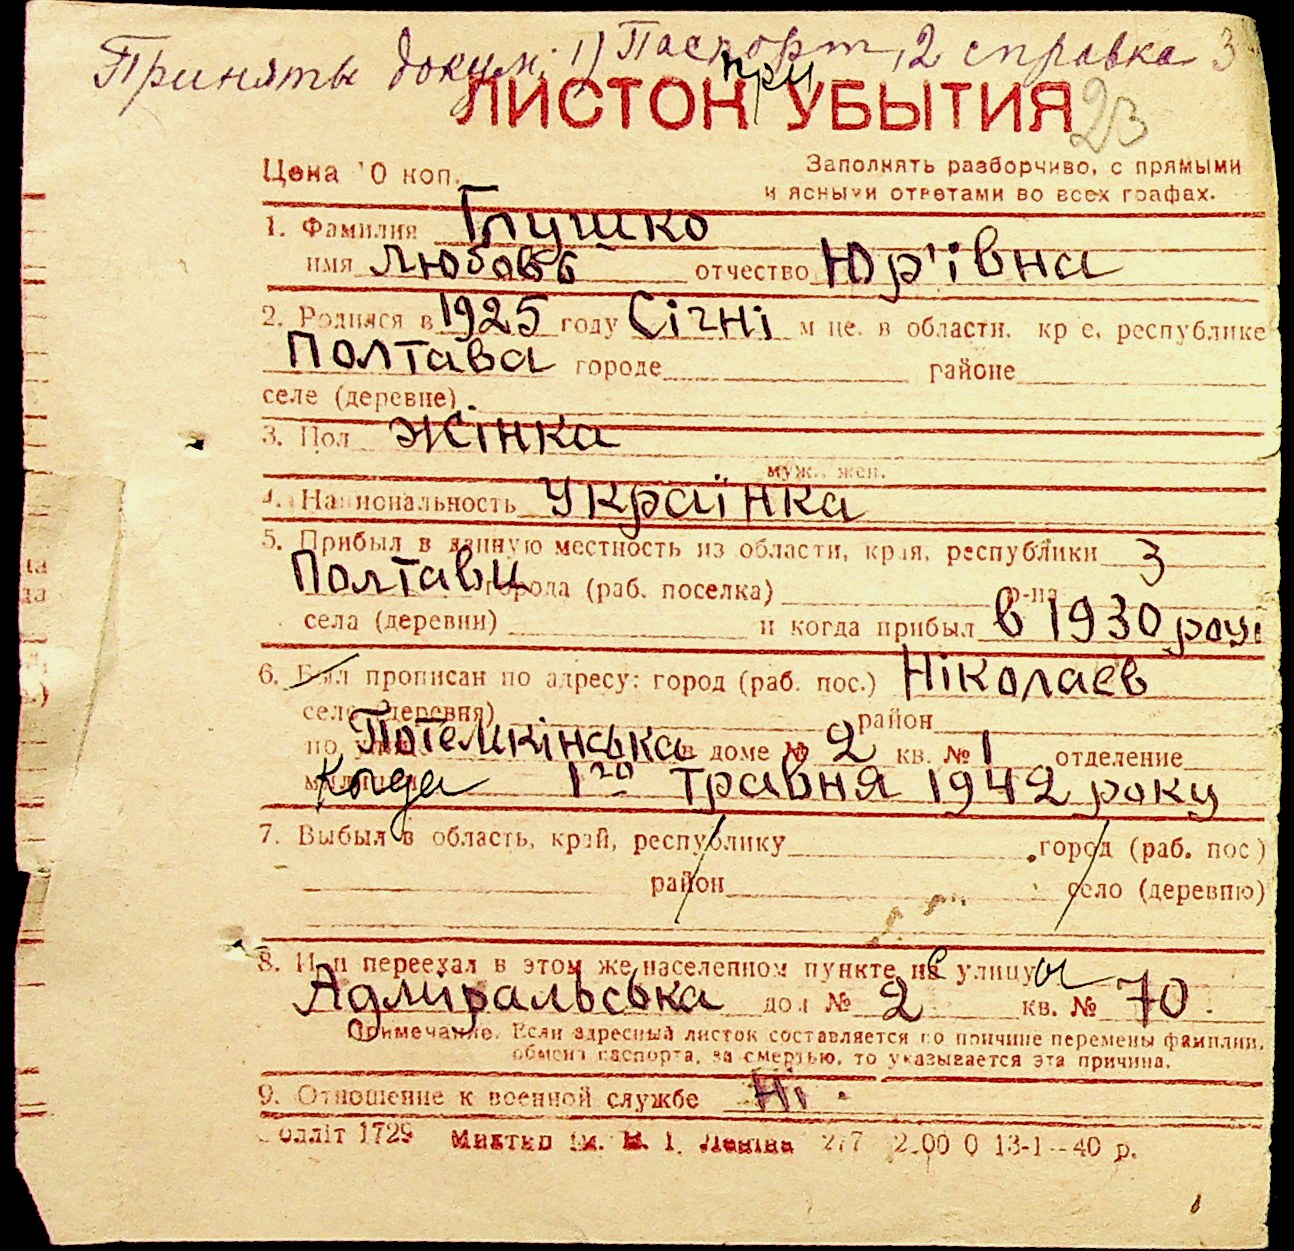 Приняты докум: 1) Паспорт, 2 справка 3
ЛИСТОК при УБЫТИЯ 23
Цена 10 коп.
Заполнять разборчиво, с прямыми
и ясными ответами во всех графах.
1. Фамилия Глушко
имя Любовь отчество Юр'івна
2. Родился в 1925 году Січні м-це. в области, кр е, республике
Полтава городе районе
селе (деревне)
3. Пол жінка
муж., жен.
4. Национальность Українка
5. Прибыл в данную местность из области, края, республики З
Полтави города (раб. поселка) р-на
села (деревни) и когда прибыл в 1930 році
6. Был прописан по адресу: город (раб. пос.) Ніколаев
село (деревня) район
по улице Потемкінська в доме № 2 кв. № 1 отделение
милиции Когда 1го травня 1942 року
7. Выбыл в область, край, республику город (раб. пос)
район село (деревню)
8. Или переехал в этом же населенном пункте на улицу ы
Адміральська дом № 2 кв. № 70.
Примечание. Если адресный листок составляется по причине перемены фамилии,
обмена паспорта, за смертью, то указывается эта причина.
9. Отношение к военной службе Ні.
олліт 1729 ім. Леніна 277 13-1—40 р.